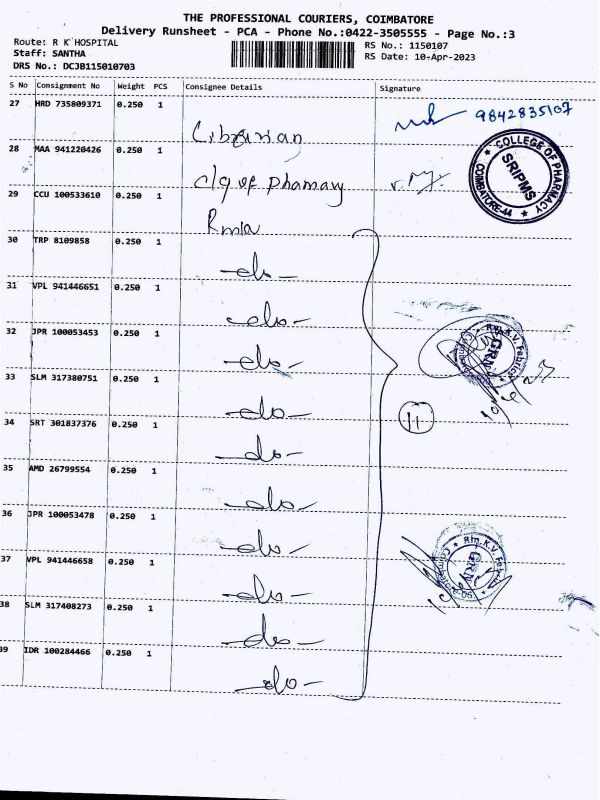 THE PROFESSIONAL COURIERS, COIMBATORE
Delivery Runsheet - PCA - Phone No.:0422-3505555 - Page No.:3
Route: R K HOSPITAL
RS No.: 1150107
Staff: SANTHA
RS Date: 10-Apr-2023
DRS No.: DCJB115010703
S No Consignment No Weight PCS Consignee Details Signature
27 HRD 735809371 0.250 1
9842835107
Librarian
28 MAA 941220426 0.250 1
COLLEGE OF PHARMACY
SRIPMS
COIMBATORE-44
clg of Phamay
29 CCU 100533610 0.250 1
Rmla
30 TRP 8109858 0.250 1
-do-
31 VPL 941446651 0.250 1
-do-
32 JPR 100053453 0.250 1
-do-
Rm.K.V. Fabrics
GRN
33 SLM 317380751 0.250 1
-do-
11
34 SRT 301837376 0.250 1
-do-
35 AMD 26799554 0.250 1
-do-
36 JPR 100053478 0.250 1
-do-
Rm.K.V. Fabrics
GRN
37 VPL 941446658 0.250 1
-do-
38 SLM 317408273 0.250 1
-do-
39 IDR 100284466 0.250 1
-do-